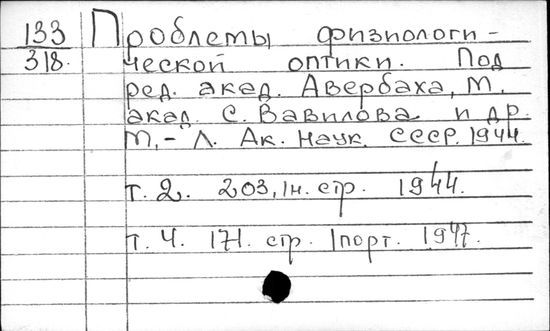 133
318.
Проблемы физиологи-
ческой оптики. Под
ред. акад. Авербаха, М.
акад. С. Вавилова и др.
М,- Л. Ак. Наук. СССР. 1944.
т. 2. 203, 1н. стр. 1944.
т. 4. 171. стр. 1порт. 1947.